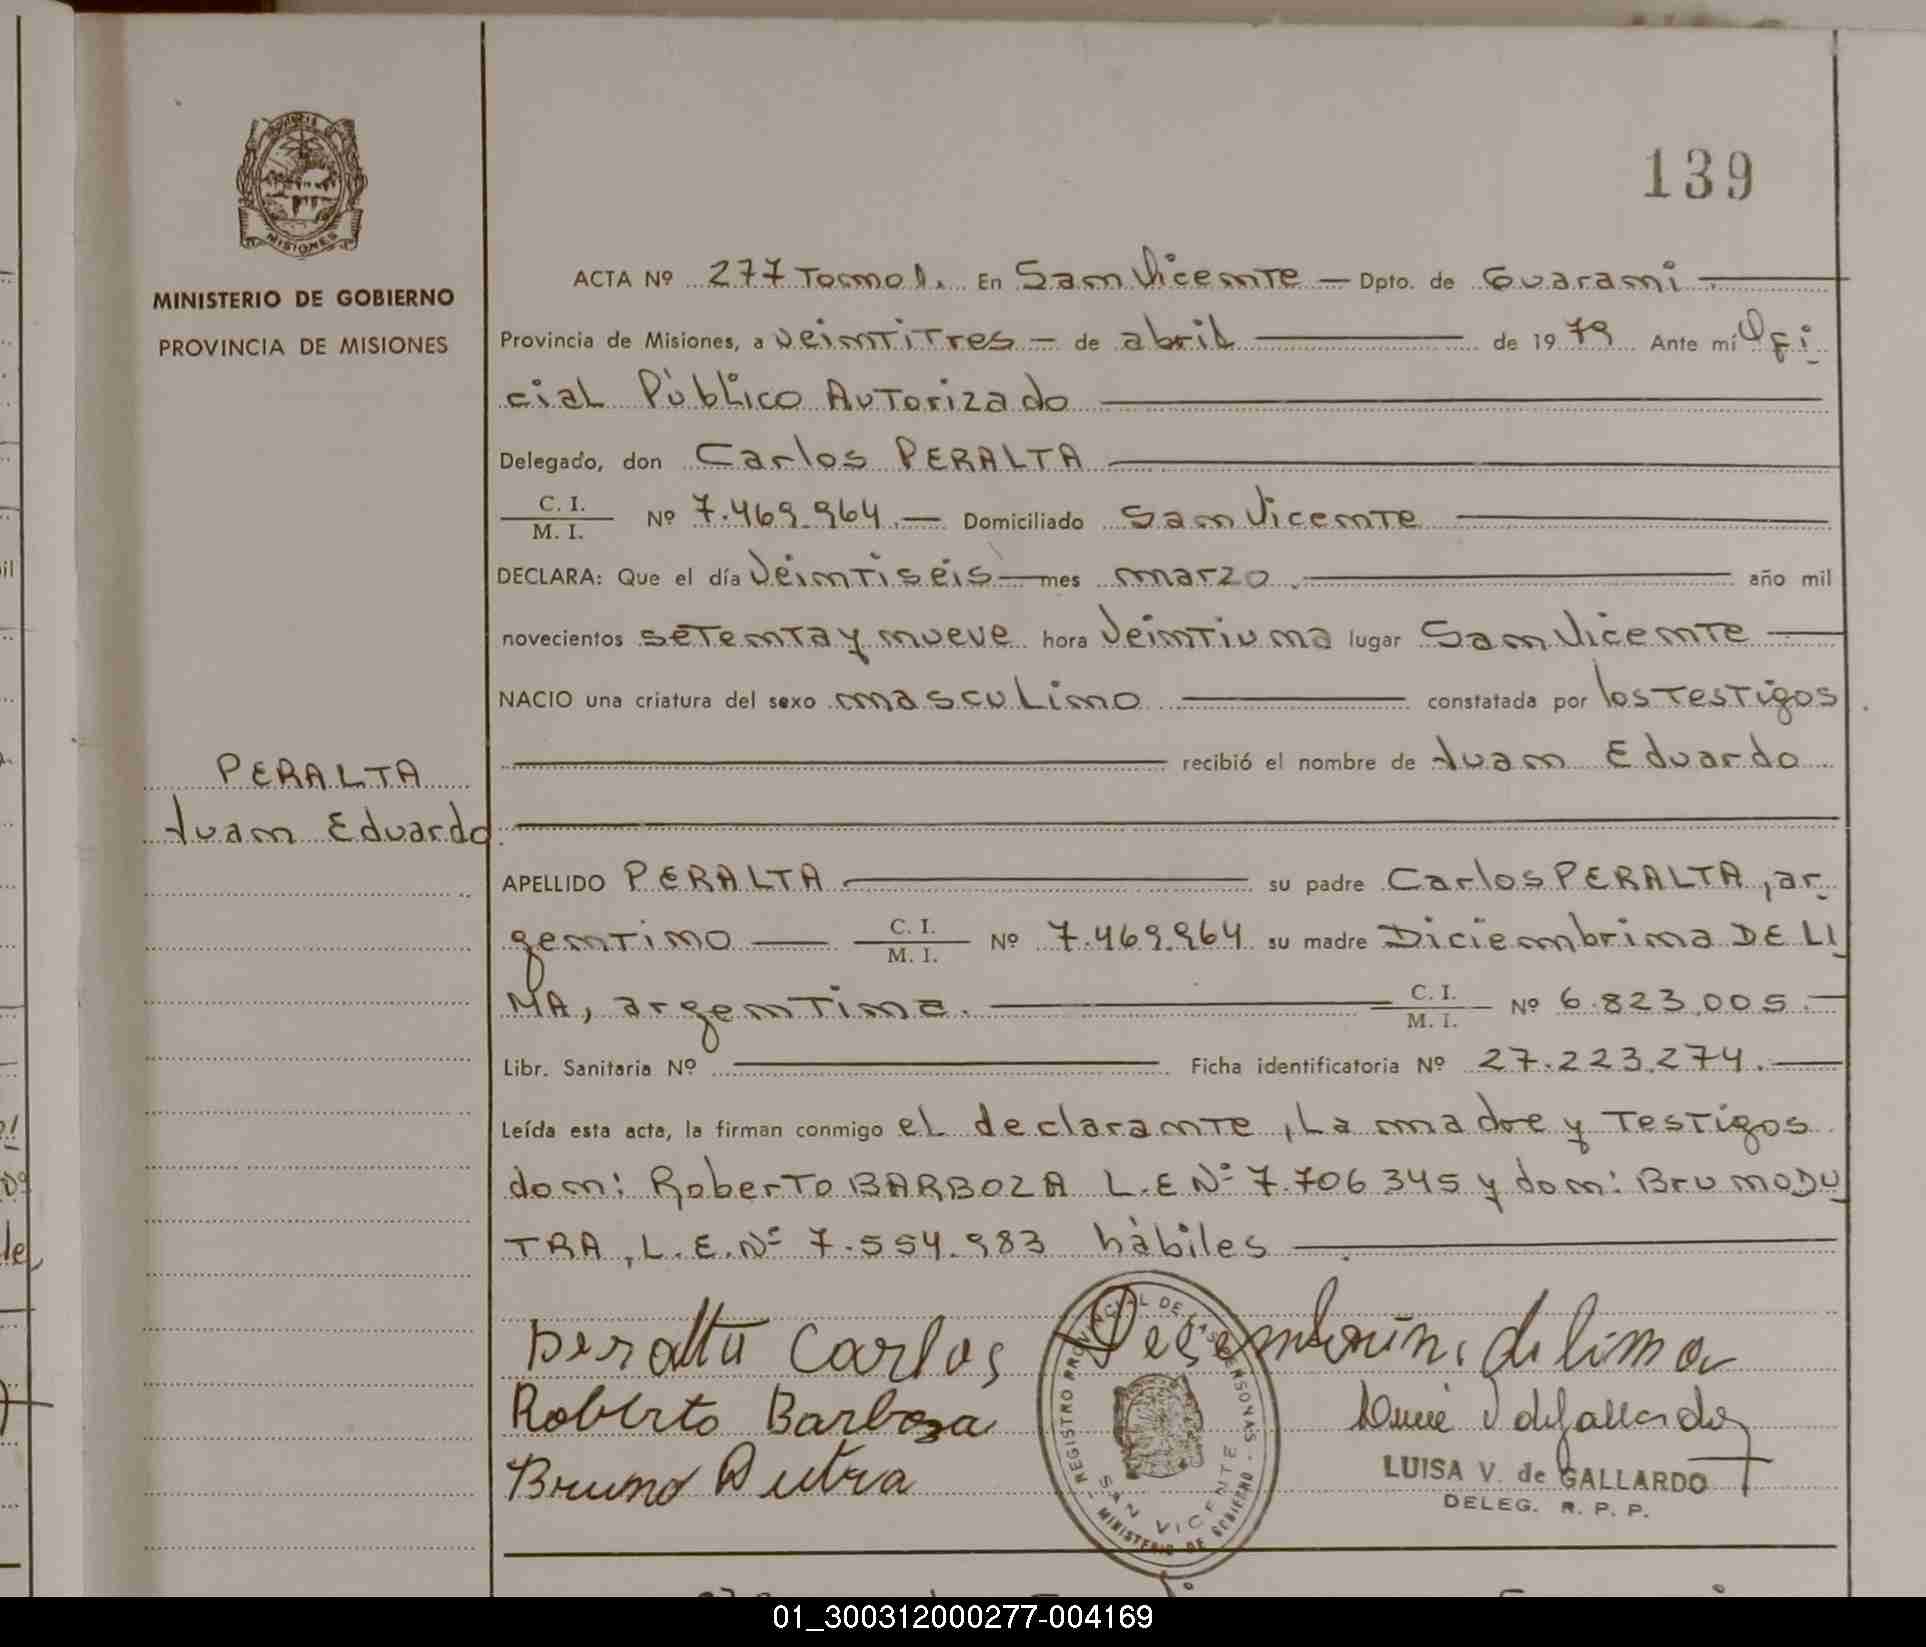 139
MINISTERIO DE GOBIERNO
PROVINCIA DE MISIONES
MISIONES
ACTA Nº 277 Tomo I. En San Vicente — Dpto. de Guarani
Provincia de Misiones, a veintitres — de abril de 1979 Ante mí Ofi
cial Pùblico Autorizado
Delegado, don Carlos PERALTA
C. I.
M. I. Nº 7.469.964.— Domiciliado San Vicente
DECLARA: Que el día Veintiseis — mes marzo. año mil
novecientos setenta y nueve hora Veintiuna lugar San Vicente
NACIO una criatura del sexo masculino constatada por los Testigos
recibió el nombre de Juan Eduardo
PERALTA
Juan Eduardo
APELLIDO PERALTA su padre Carlos PERALTA, ar
gentino — C. I. M. I. Nº 7.469.964 su madre Diciembrina DE LI
MA, argentina. C. I. M. I. Nº 6.823.005.—
Libr. Sanitaria Nº Ficha identificatoria Nº 27.223.274.—
Leída esta acta, la firman conmigo el declarante, La madre y Testigos
don: Roberto BARBOZA L.E Nº 7.706.345 y don: Bruno DU
TRA, L.E. Nº 7.554.983 hàbiles
Peralta Carlos Desembrina de lima
Roberto Barboza
Bruno Dutra
REGISTRO PROVINCIAL DE LAS PERSONAS - MINISTERIO DE GOBIERNO -
SAN VICENTE
LUISA V. de GALLARDO
DELEG. R. P. P.
01_300312000277-004169